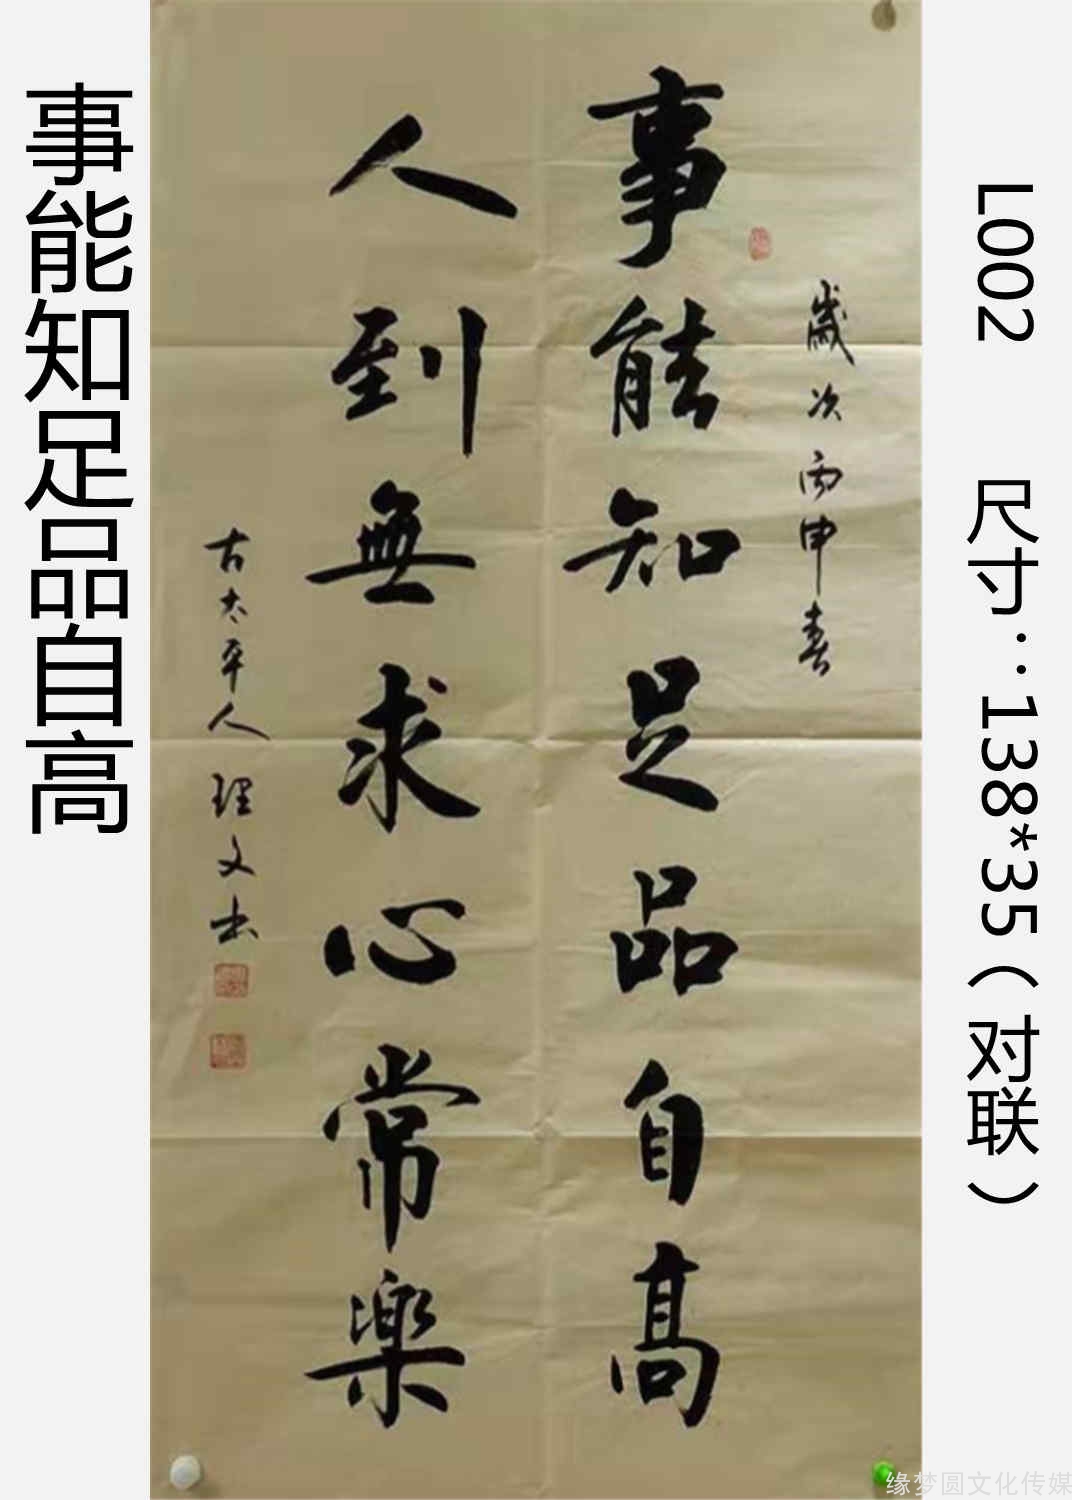 事能知足品自高
歲次丙申春
事能知足品自高
人到無求心常樂
古太平人理文书
L002 尺寸：138*35（对联）
缘梦圆文化传媒